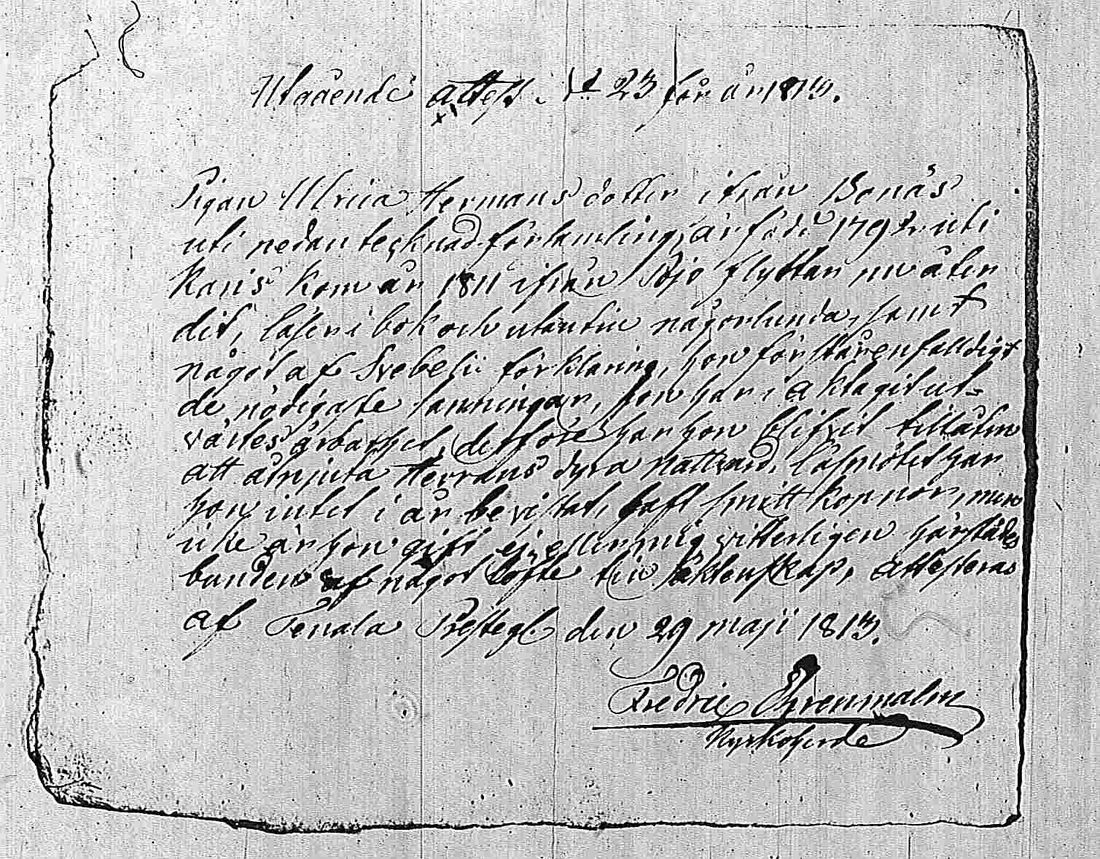 Utgående attest N 23 för år 1813.
Pigan Ulrica Hermans dotter ifrån Bonäs
uti nedantecknad församling, är född 1792 uti
Karis kom år 1811 ifrån Pojo flyttar nu åter
dit, läser i bok och utantill någorlunda, samt
något af Svebelii förklaring, hon förstår enfalldigt
de nödigaste sanningar, hon har i akttagit ut-
värtes ärbarhet, dertore har hon blifvit tillåten
att åtnjuta Herrans dyra nattvard, läsmötet har
hon intet i år bevistat, haft smittkoppor, men
icke är hon gift ej eller mig vitterligen härstädes
bunden af något löfte till äktenskap, attesteras
af Tenala Prestegl. den 29 maji 1813.
Fredric Ehrenmalm
Kyrkoherde